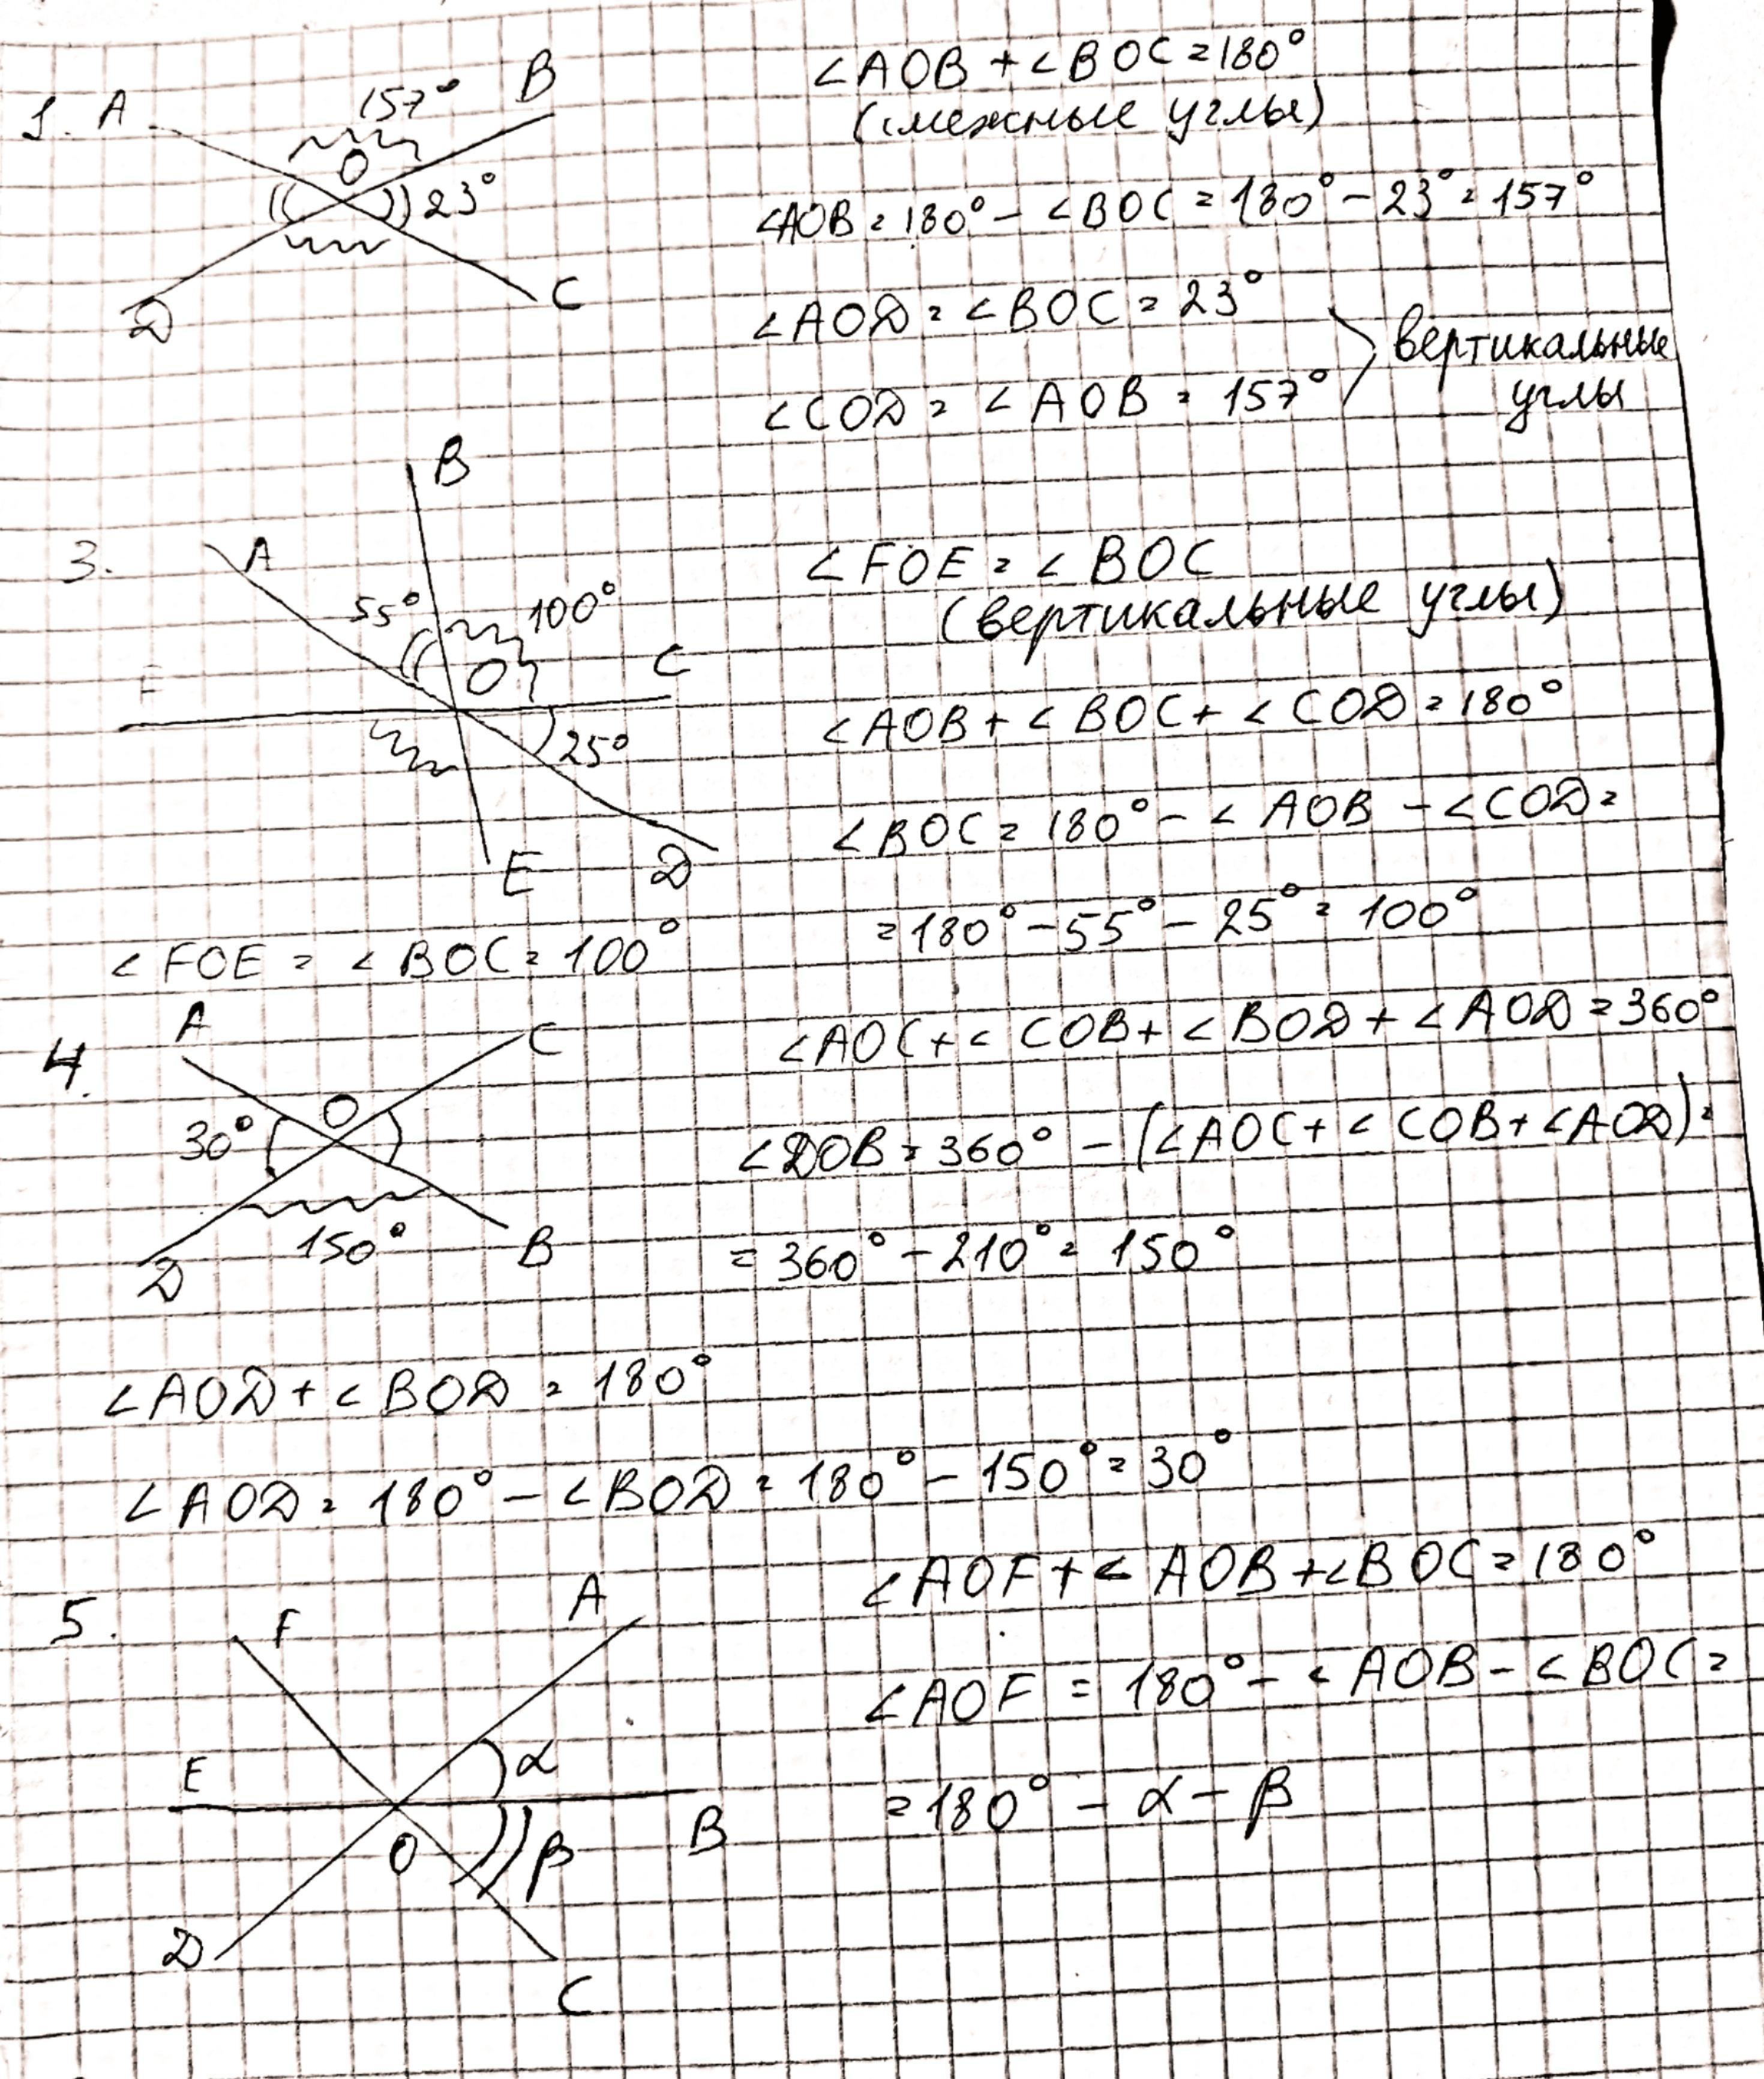 1. A 157° B
O
23°
D C
∠AOB + ∠BOC = 180°
(смежные углы)
∠AOB = 180° - ∠BOC = 180° - 23° = 157°
∠AOD = ∠BOC = 23°
∠COD = ∠AOB = 157°
вертикальные
углы
3. A B
55° 100°
F O C
25°
E D
∠FOE = ∠BOC
(вертикальные углы)
∠AOB + ∠BOC + ∠COD = 180°
∠BOC = 180° - ∠AOB - ∠COD =
= 180° - 55° - 25° = 100°
∠FOE = ∠BOC = 100°
4. A C
30° O
150°
D B
∠AOC + ∠COB + ∠BOD + ∠AOD = 360°
∠DOB = 360° - (∠AOC + ∠COB + ∠AOD) =
= 360° - 210° = 150°
∠AOD + ∠BOD = 180°
∠AOD = 180° - ∠BOD = 180° - 150° = 30°
5. F A
E α
O β B
D C
∠AOF + ∠AOB + ∠BOC = 180°
∠AOF = 180° - ∠AOB - ∠BOC =
= 180° - α - β